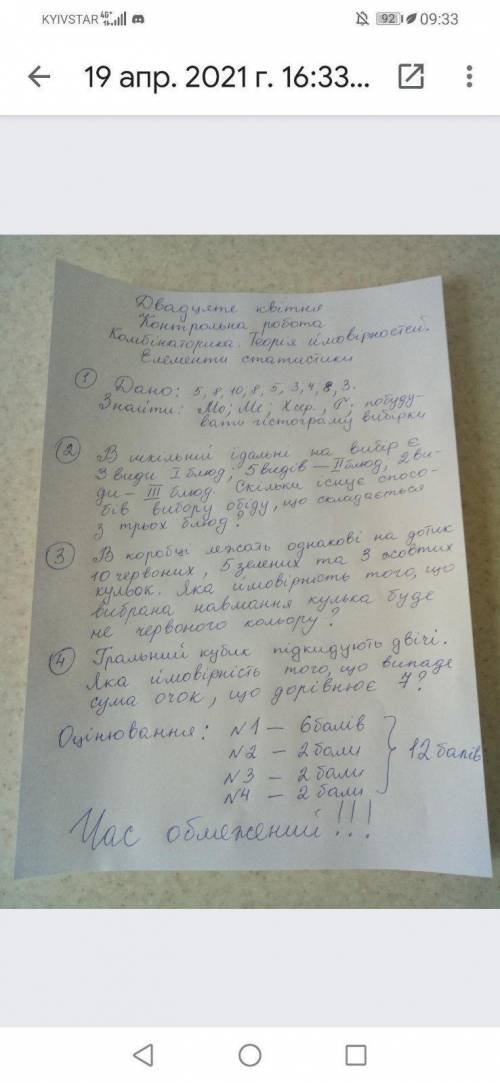 KYIVSTAR 4G+ 92 09:33
19 апр. 2021 г. 16:33...
Двадцяте квітня
Контрольна робота
Комбінаторика. Теорія ймовірностей.
Елементи статистики
1 Дано: 5, 8, 10, 8, 5, 3, 4, 8, 3.
Знайти: Мо; Ме; Хсер., побуду-
вати гістограму вибірки
2 В шкільній їдальні на вибір є
3 види I блюд, 5 видів – II блюд, 2 ви-
ди – III блюд. Скільки існує спосо-
бів вибору обіду, що складається
з трьох блюд?
3 В коробці лежать однакові на дотик
10 червоних, 5 зелених та 3 жовтих
кульок. Яка ймовірність того, що
вибрана навмання кулька буде
не червоного кольору?
4 Гральний кубик підкидують двічі.
Яка ймовірність того, що випаде
сума очок, що дорівнює 7?
Оцінювання: N1 – 6 балів
N2 – 2 бали
N3 – 2 бали
N4 – 2 бали
12 балів
Час обмежений!!!